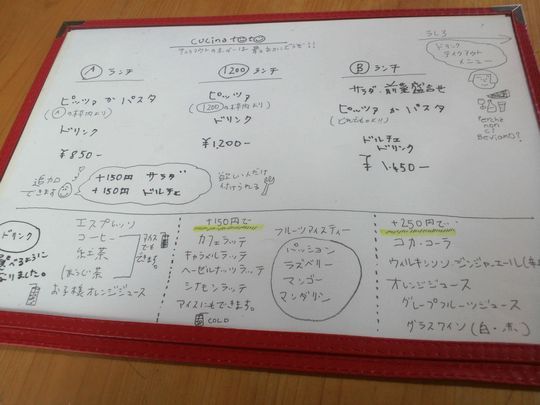 cucina toto
うしろ
ドリンク
テイクアウト
メニュー
Perchè
non
ci
Beviamo?
A ランチ
ピッツァ か パスタ
(Aの枠内より)
ドリンク
¥850-
1200 ランチ
ピッツァ
(1200の枠より)
ドリンク
¥1,200-
B ランチ
サラダ 前菜盛合せ
ピッツァ か パスタ
(どれでもOKより)
ドルチェ
ドリンク
¥1,450-
追加
できます
+150円 サラダ
+150円 ドルチェ
欲しい人だけ
付けられる
ドリンク
選べるように
なりました。
エスプレッソ
コーヒー
紅茶
ほうじ茶
アイス
でも
できます。
お子様オレンジジュース
+150円で
カフェラッテ
キャラメルラッテ
ヘーゼルナッツラッテ
シナモンラッテ
アイスにもできます。
COLD
フルーツアイスティー
パッション
ラズベリー
マンゴー
マンダリン
+250円で
コカ・コーラ
ウィルキンソン・ジンジャーエール(辛
オレンジジュース
グレープフルーツジュース
グラスワイン(白・赤)